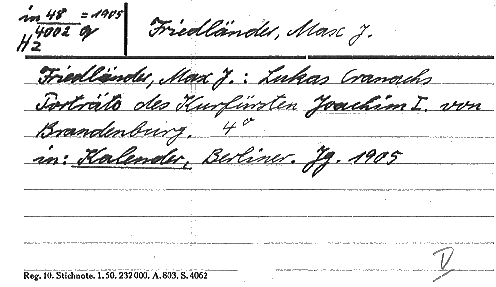 in 48 = 1905
4002 q
Hz
Friedländer, Max J.
Friedländer, Max J.: Lukas Cranachs
Porträts des Kurfürsten Joachim I. von
Brandenburg. 4°
in: Kalender, Berliner. Jg. 1905
V
Reg. 10. Stichnote. 1. 50. 232000. A. 803. S. 4062